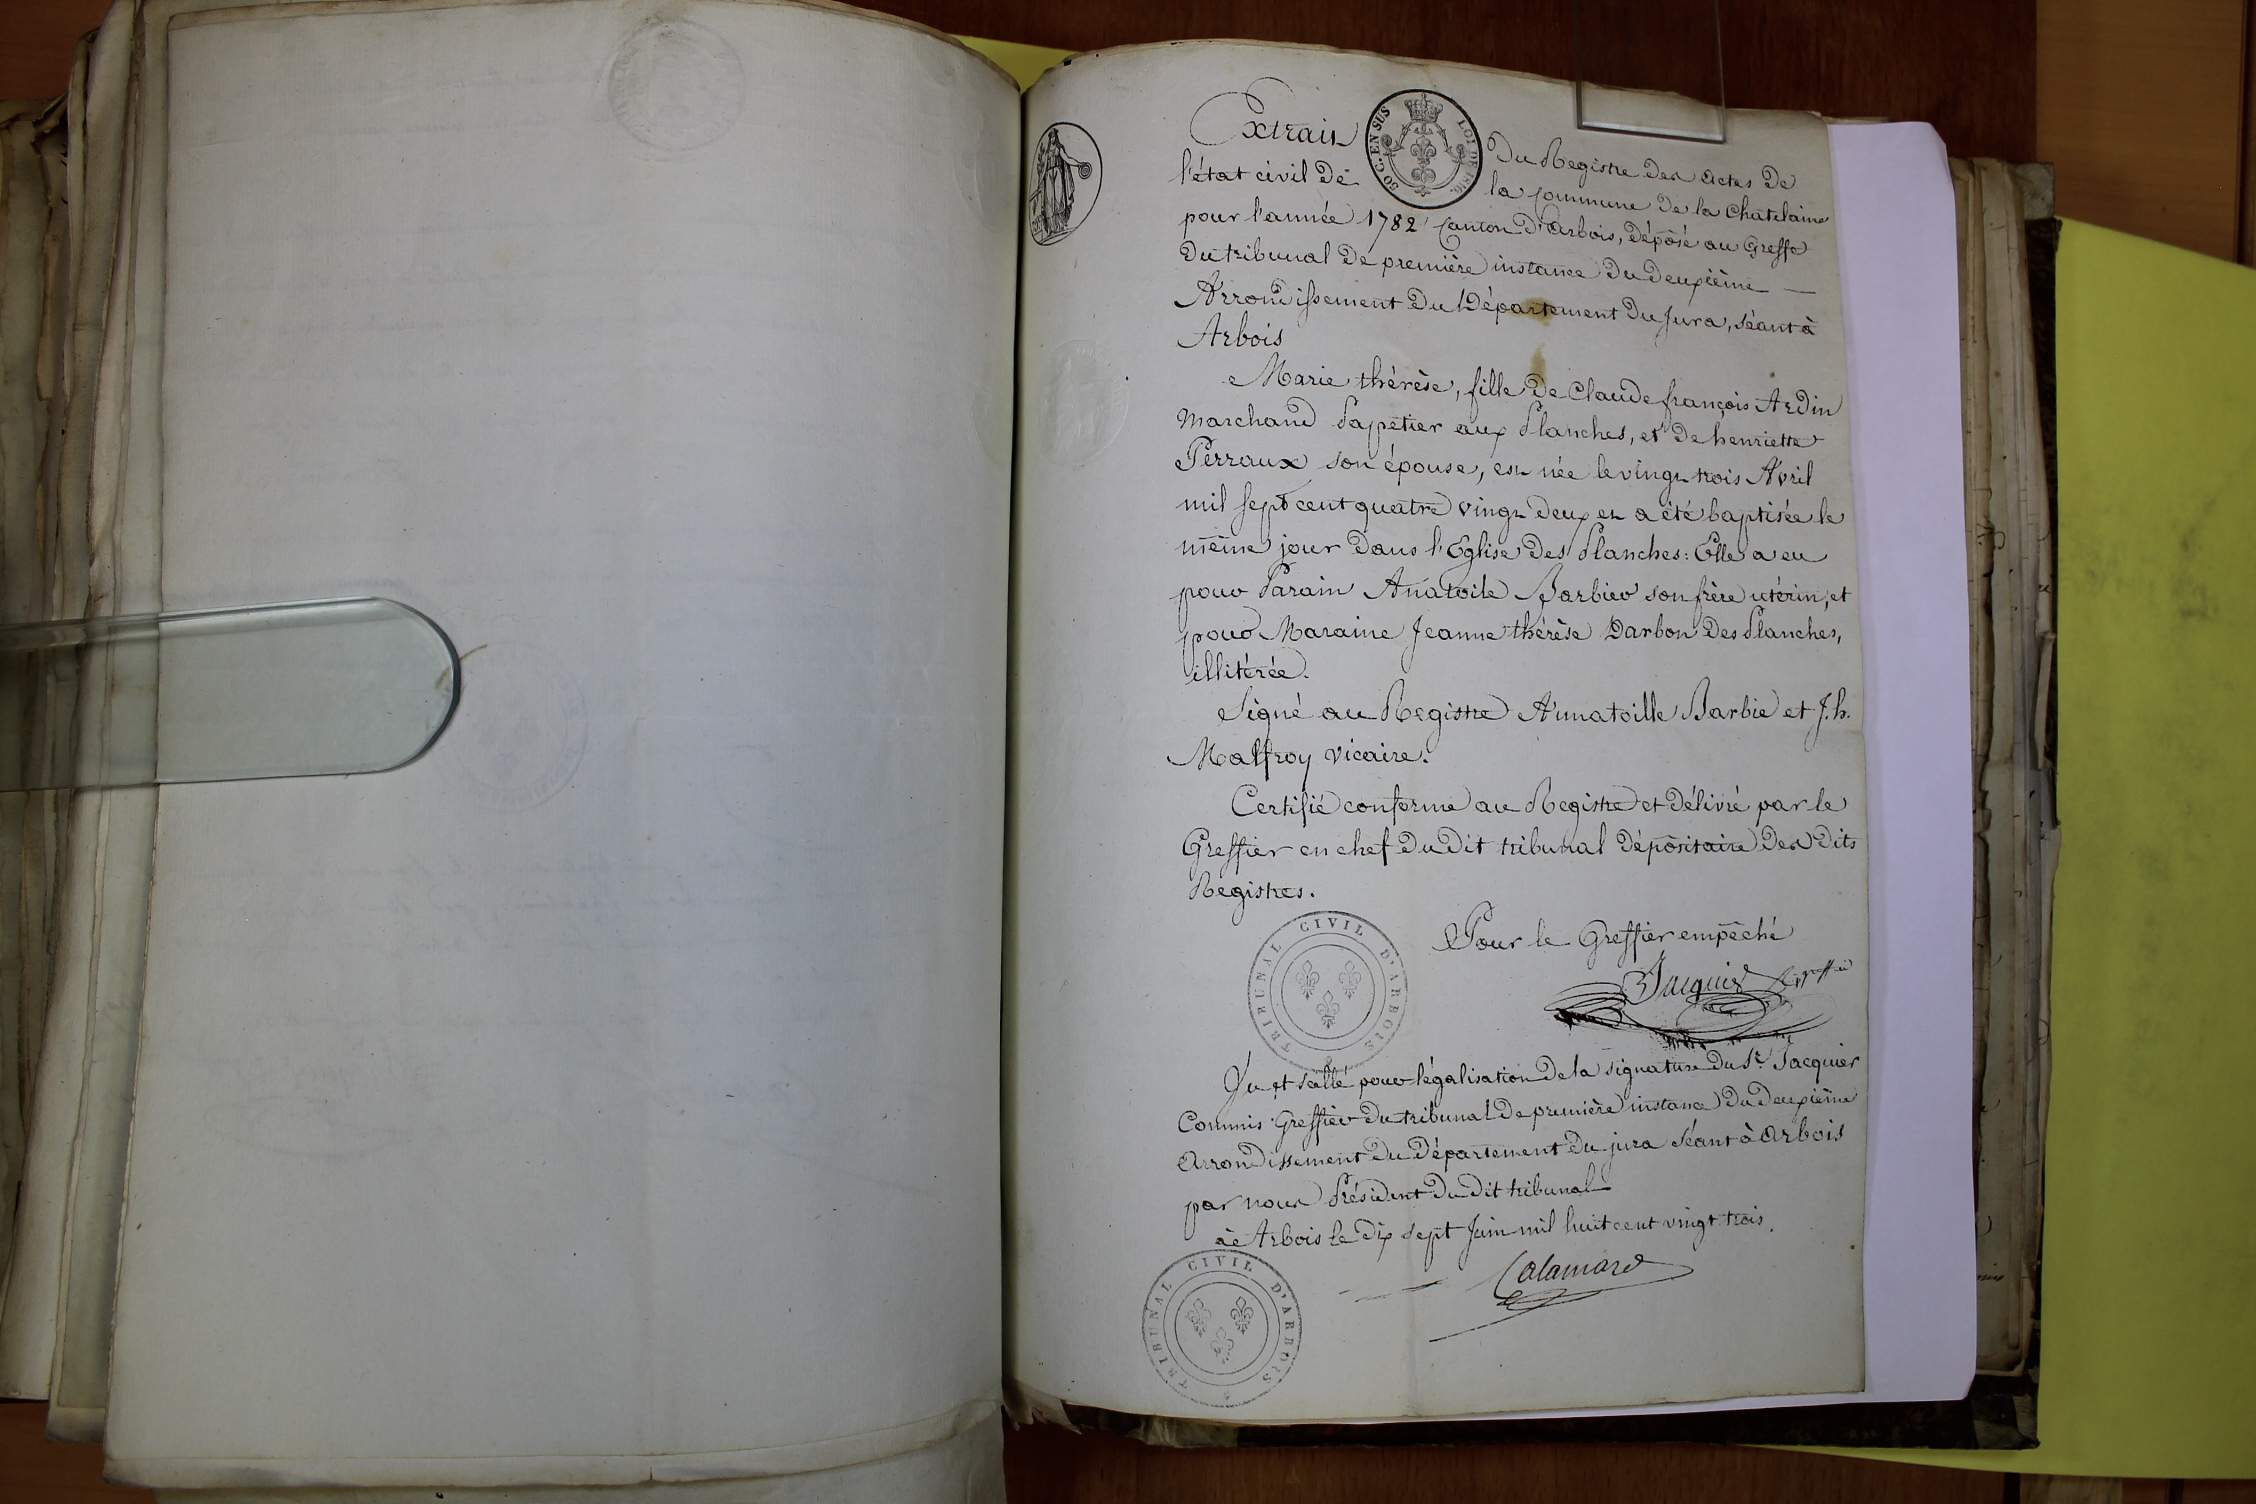 Extrait du Registre des actes de
l'état civil de la commune de la Chatelaine
pour l'année 1782 Canton d'Arbois, déposé au Greffe
du tribunal de première instance du deuxième
Arrondissement du Département du Jura, séant à
Arbois
50 C. EN SUS LOI DE 1816.
Marie thérèse, fille de Claude françois Ardin
Marchand Papetier aux Planches, et de henriette
Perraux son épouse, est née le vingt trois Avril
mil sept cent quatre vingt deux et a été baptisée le
même jour dans l'Eglise des Planches: Elle a eu
pour Parain Anatoile Barbier son frère utérin, et
pour Maraine Jeanne thérèse Darbon des Planches,
illitérée.
Signé au Registre Annatoille Barbie et J. h.
Malfroy vicaire.
Certifié conforme au Registre et délivré par le
Greffier en chef du dit tribunal dépositaire des dits
Registres.
Pour le Greffier empêché
TRIBUNAL CIVIL D'ARBOIS
Jacquier
Vu et scellé pour légalisation de la signature du Sr. Jacquier
Commis Greffier du tribunal de première instance du deuxième
arrondissement du Département du jura séant à arbois
par nous Président du dit tribunal
à Arbois le dix sept Juin mil huit cent vingt trois.
Calamard
TRIBUNAL CIVIL D'ARBOIS